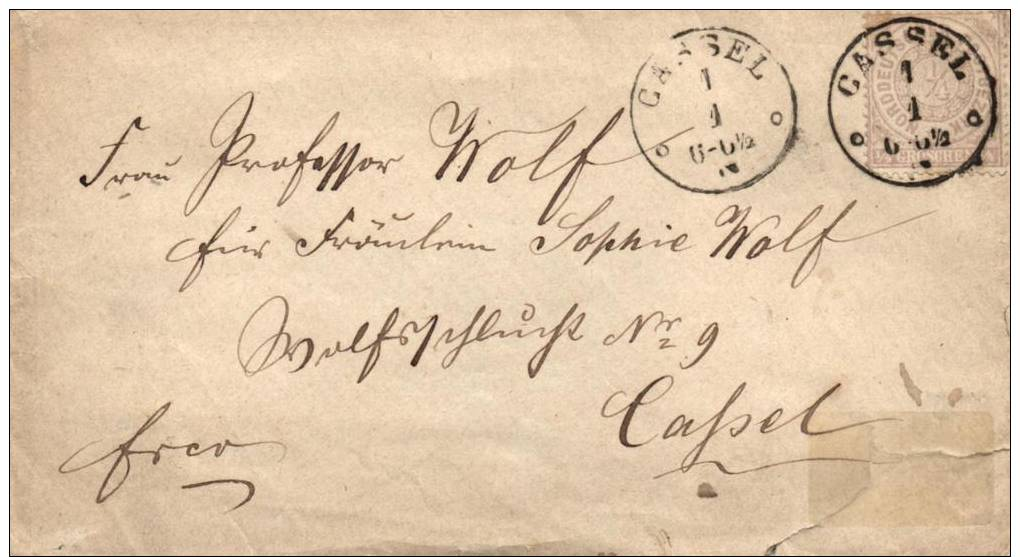 CASSEL
1
1
6-6½
N
CASSEL
1
1
6-6½
NORDDEUTSCHER
¼
¼ GROSCHEN
Frau Professor Wolf
für Fräulein Sophie Wolf
Wolfsschlucht Nr 9
Cassel
frco